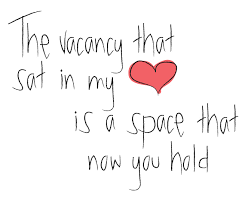 The vacancy that
sat in my
is a space that
now you hold